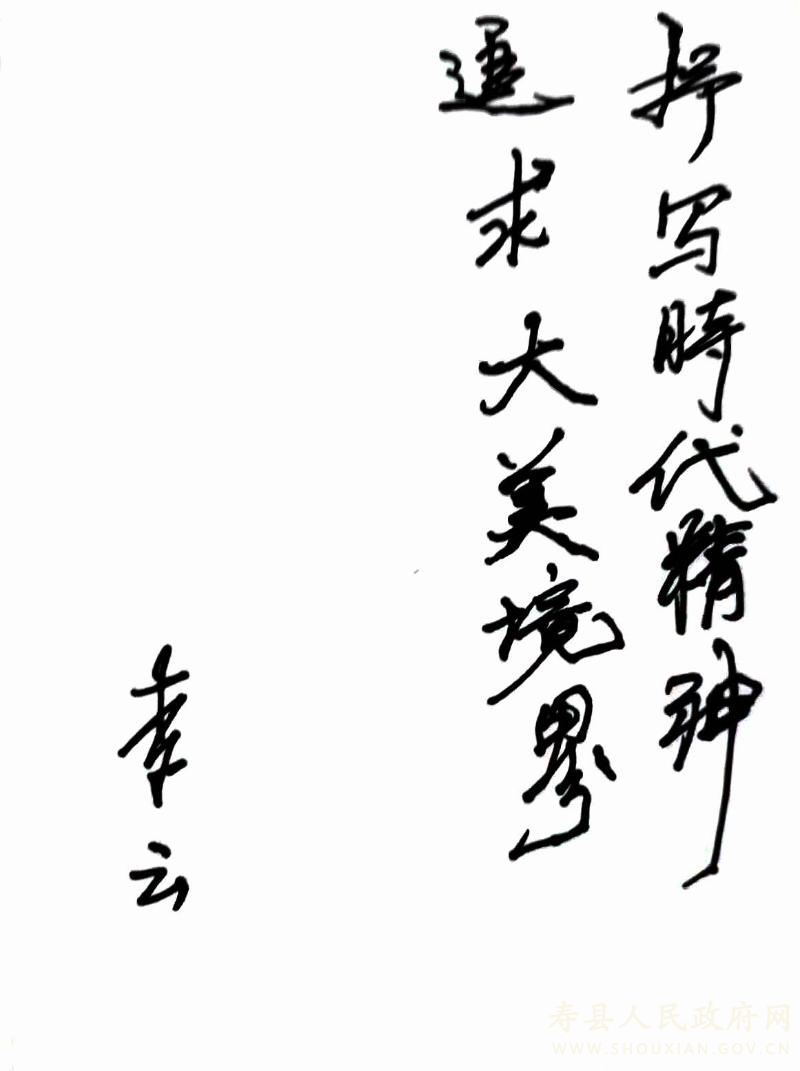 抒写時代精神
追求大美境界
李云
寿县人民政府网
WWW.SHOUXIAN.GOV.CN